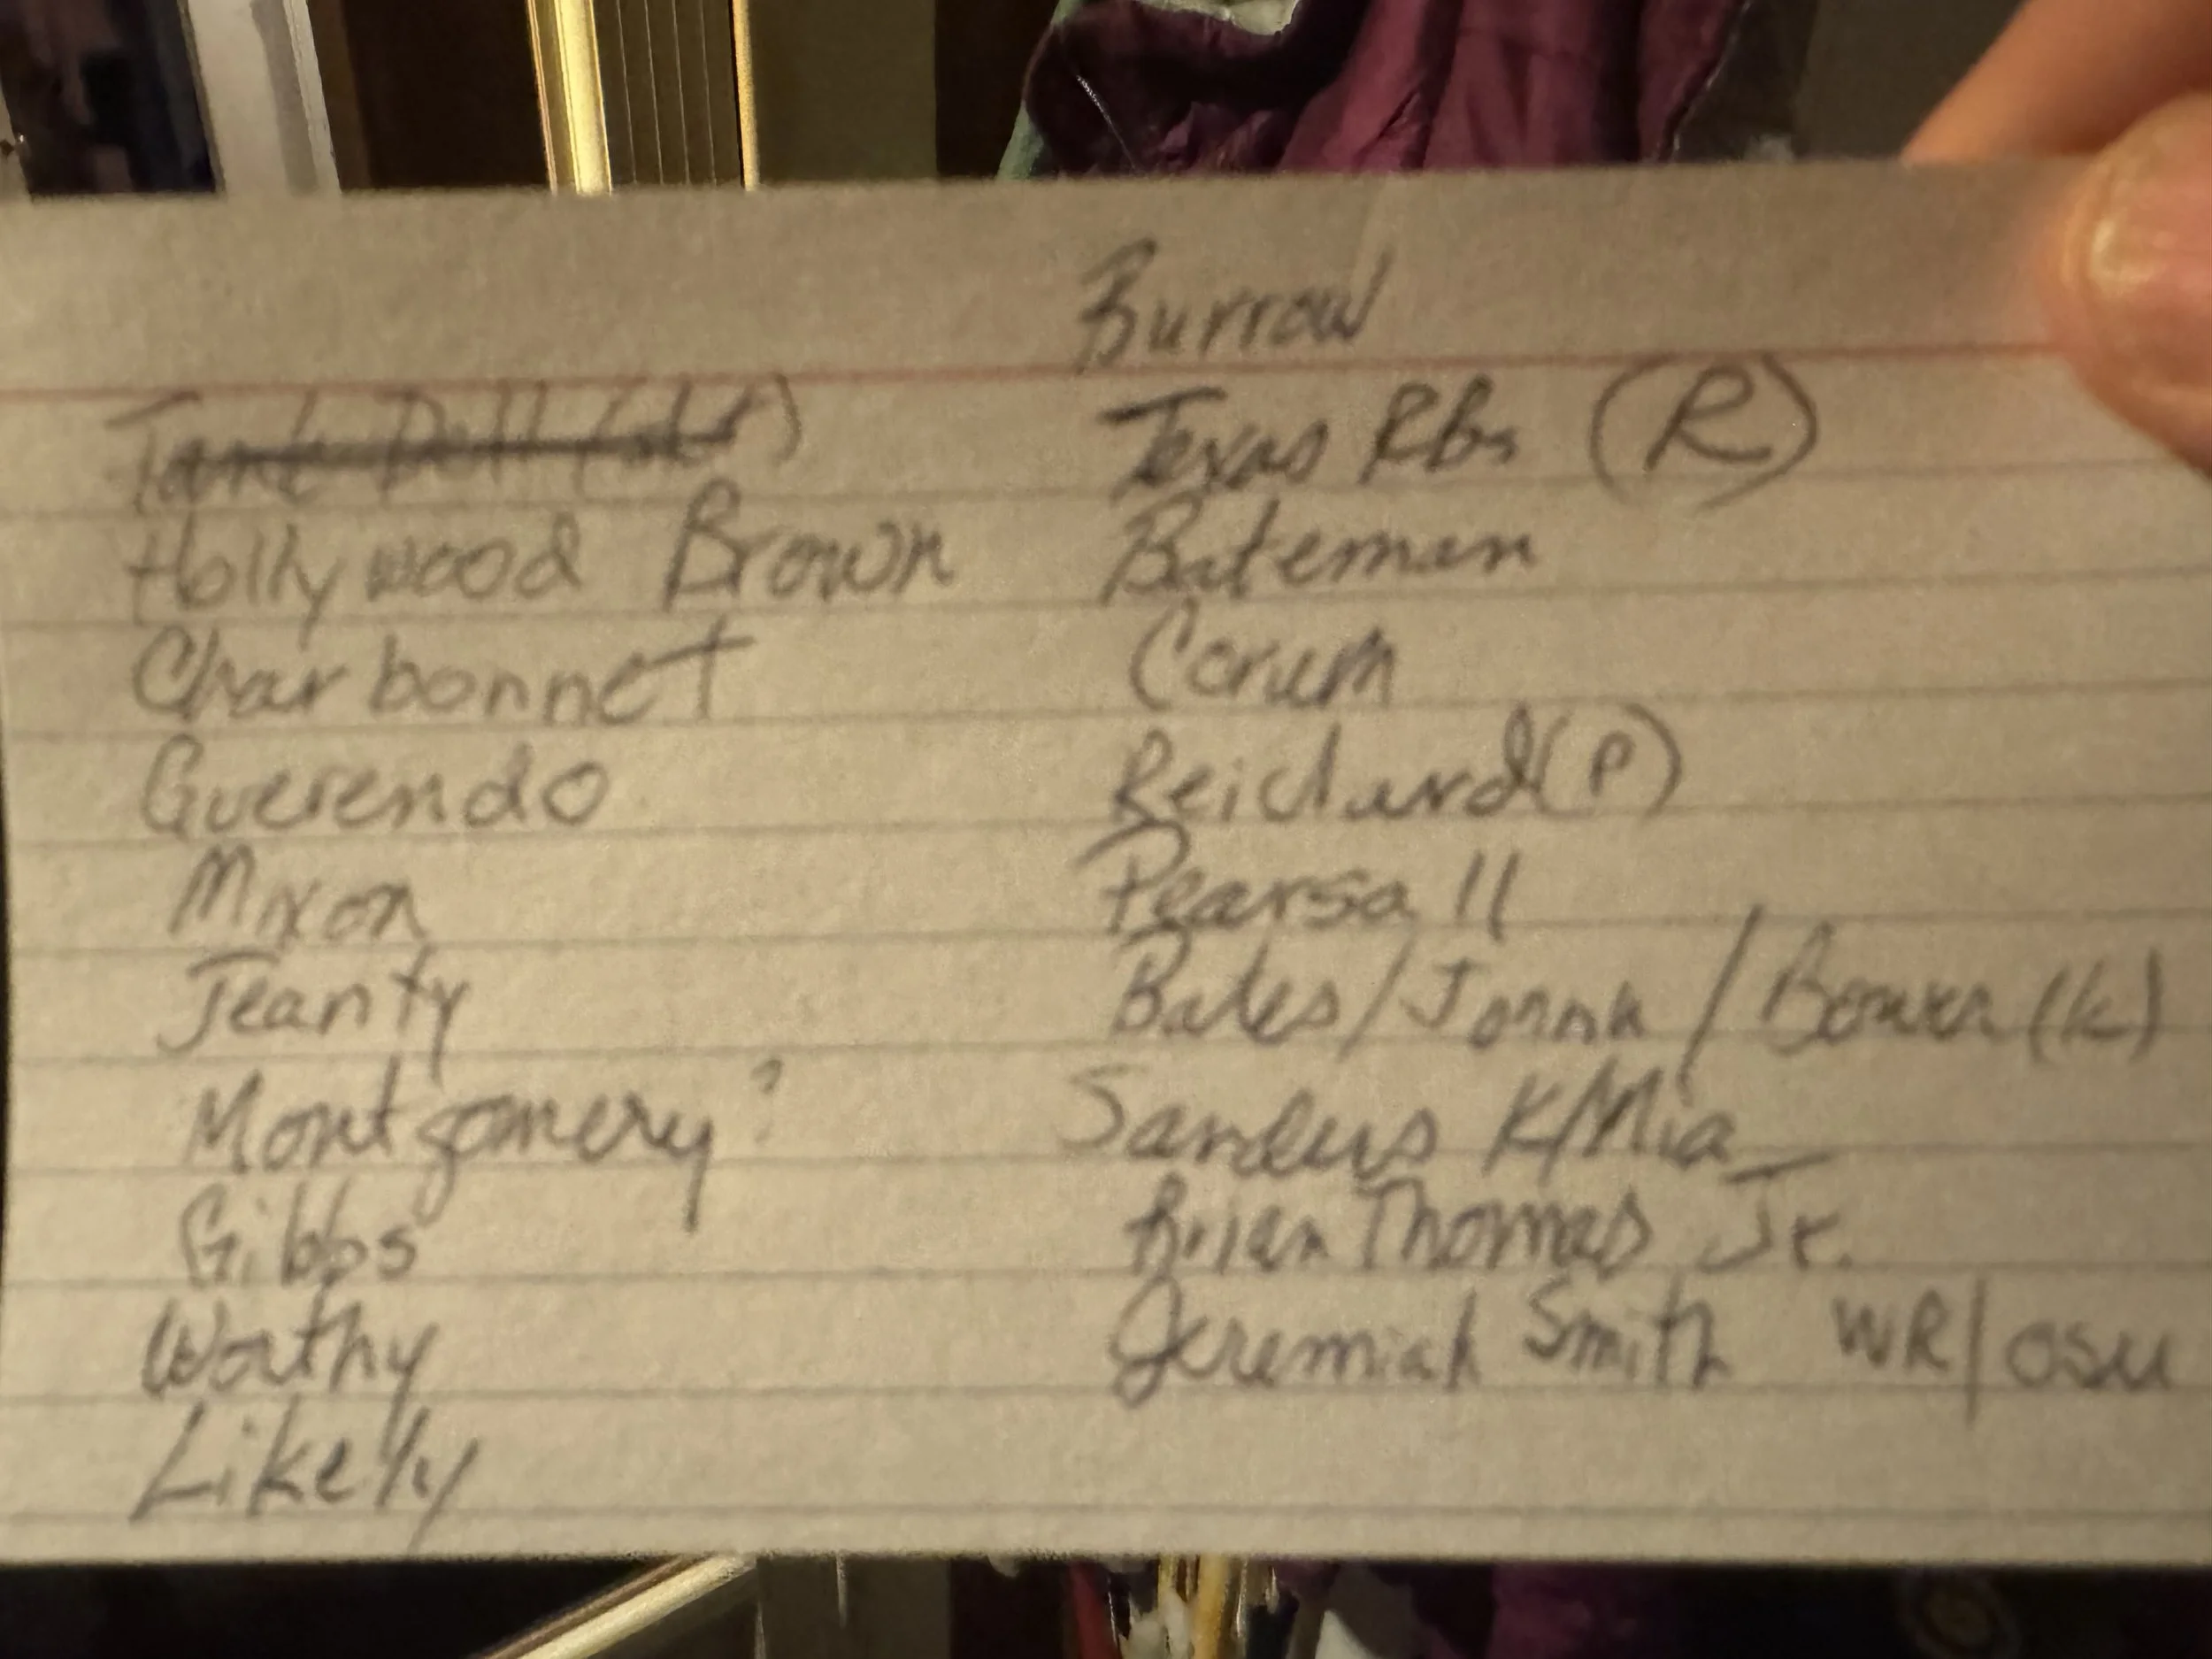 Tank Dell
Hollywood Brown
Charbonnet
Guerendo
Mixon
Jeanty
Montgomery?
Gibbs
Worthy
Likely
Burrow
Texas Rbs (R)
Bateman
Corum
Reichard (P)
Pearsall
Bates / / (k)
Sanders K/Mia
Brian Thomas Jr.
Jeremiah Smith WR/OSU